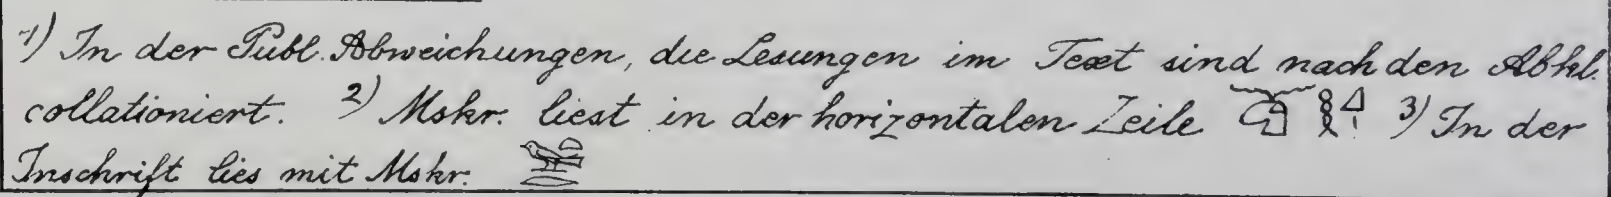 1) In der Publ. Abweichungen, die Lesungen im Text sind nach den Abkl.
collationiert. 2) Mskr. liest in der horizontalen Zeile 3) In der
Inschrift lies mit Mskr.